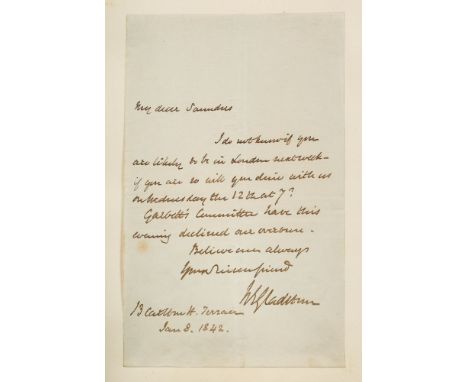 My dear Saunders
I do not know if you
are likely to be in London next week –
if you are so will you dine with us
on Wednesday the 12th at 7?
Garbett's Committee have this
evening declined our overture.
Believe me always
Your sincere friend
WEGladstone
13 Carlton H. Terrace
Jan 8. 1842.